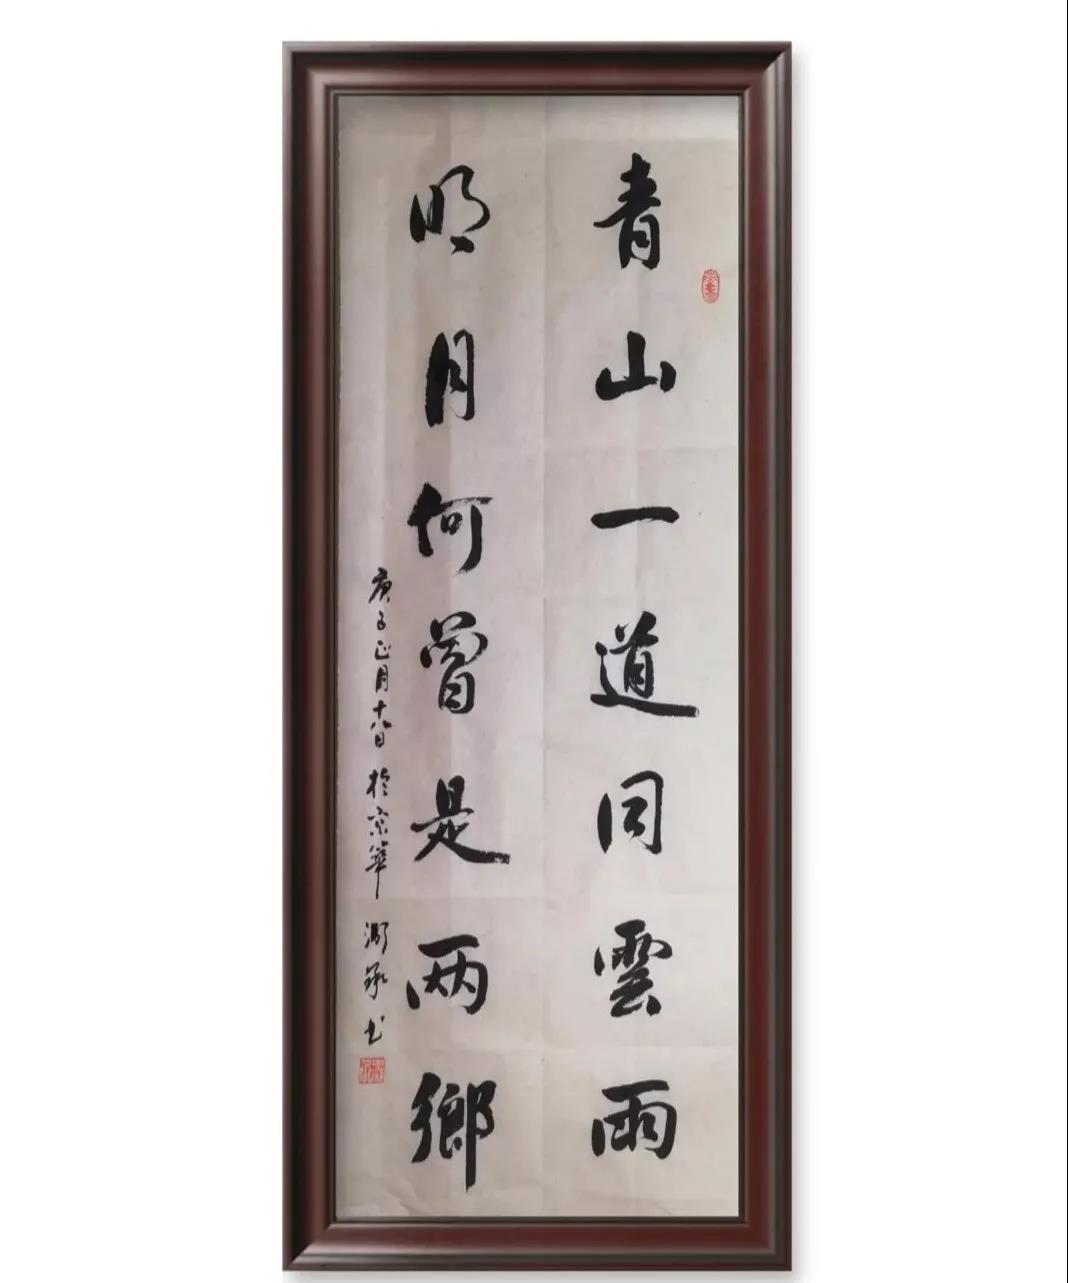 青山一道同雲雨
明月何曾是两鄉
庚子正月十八日於京華 書